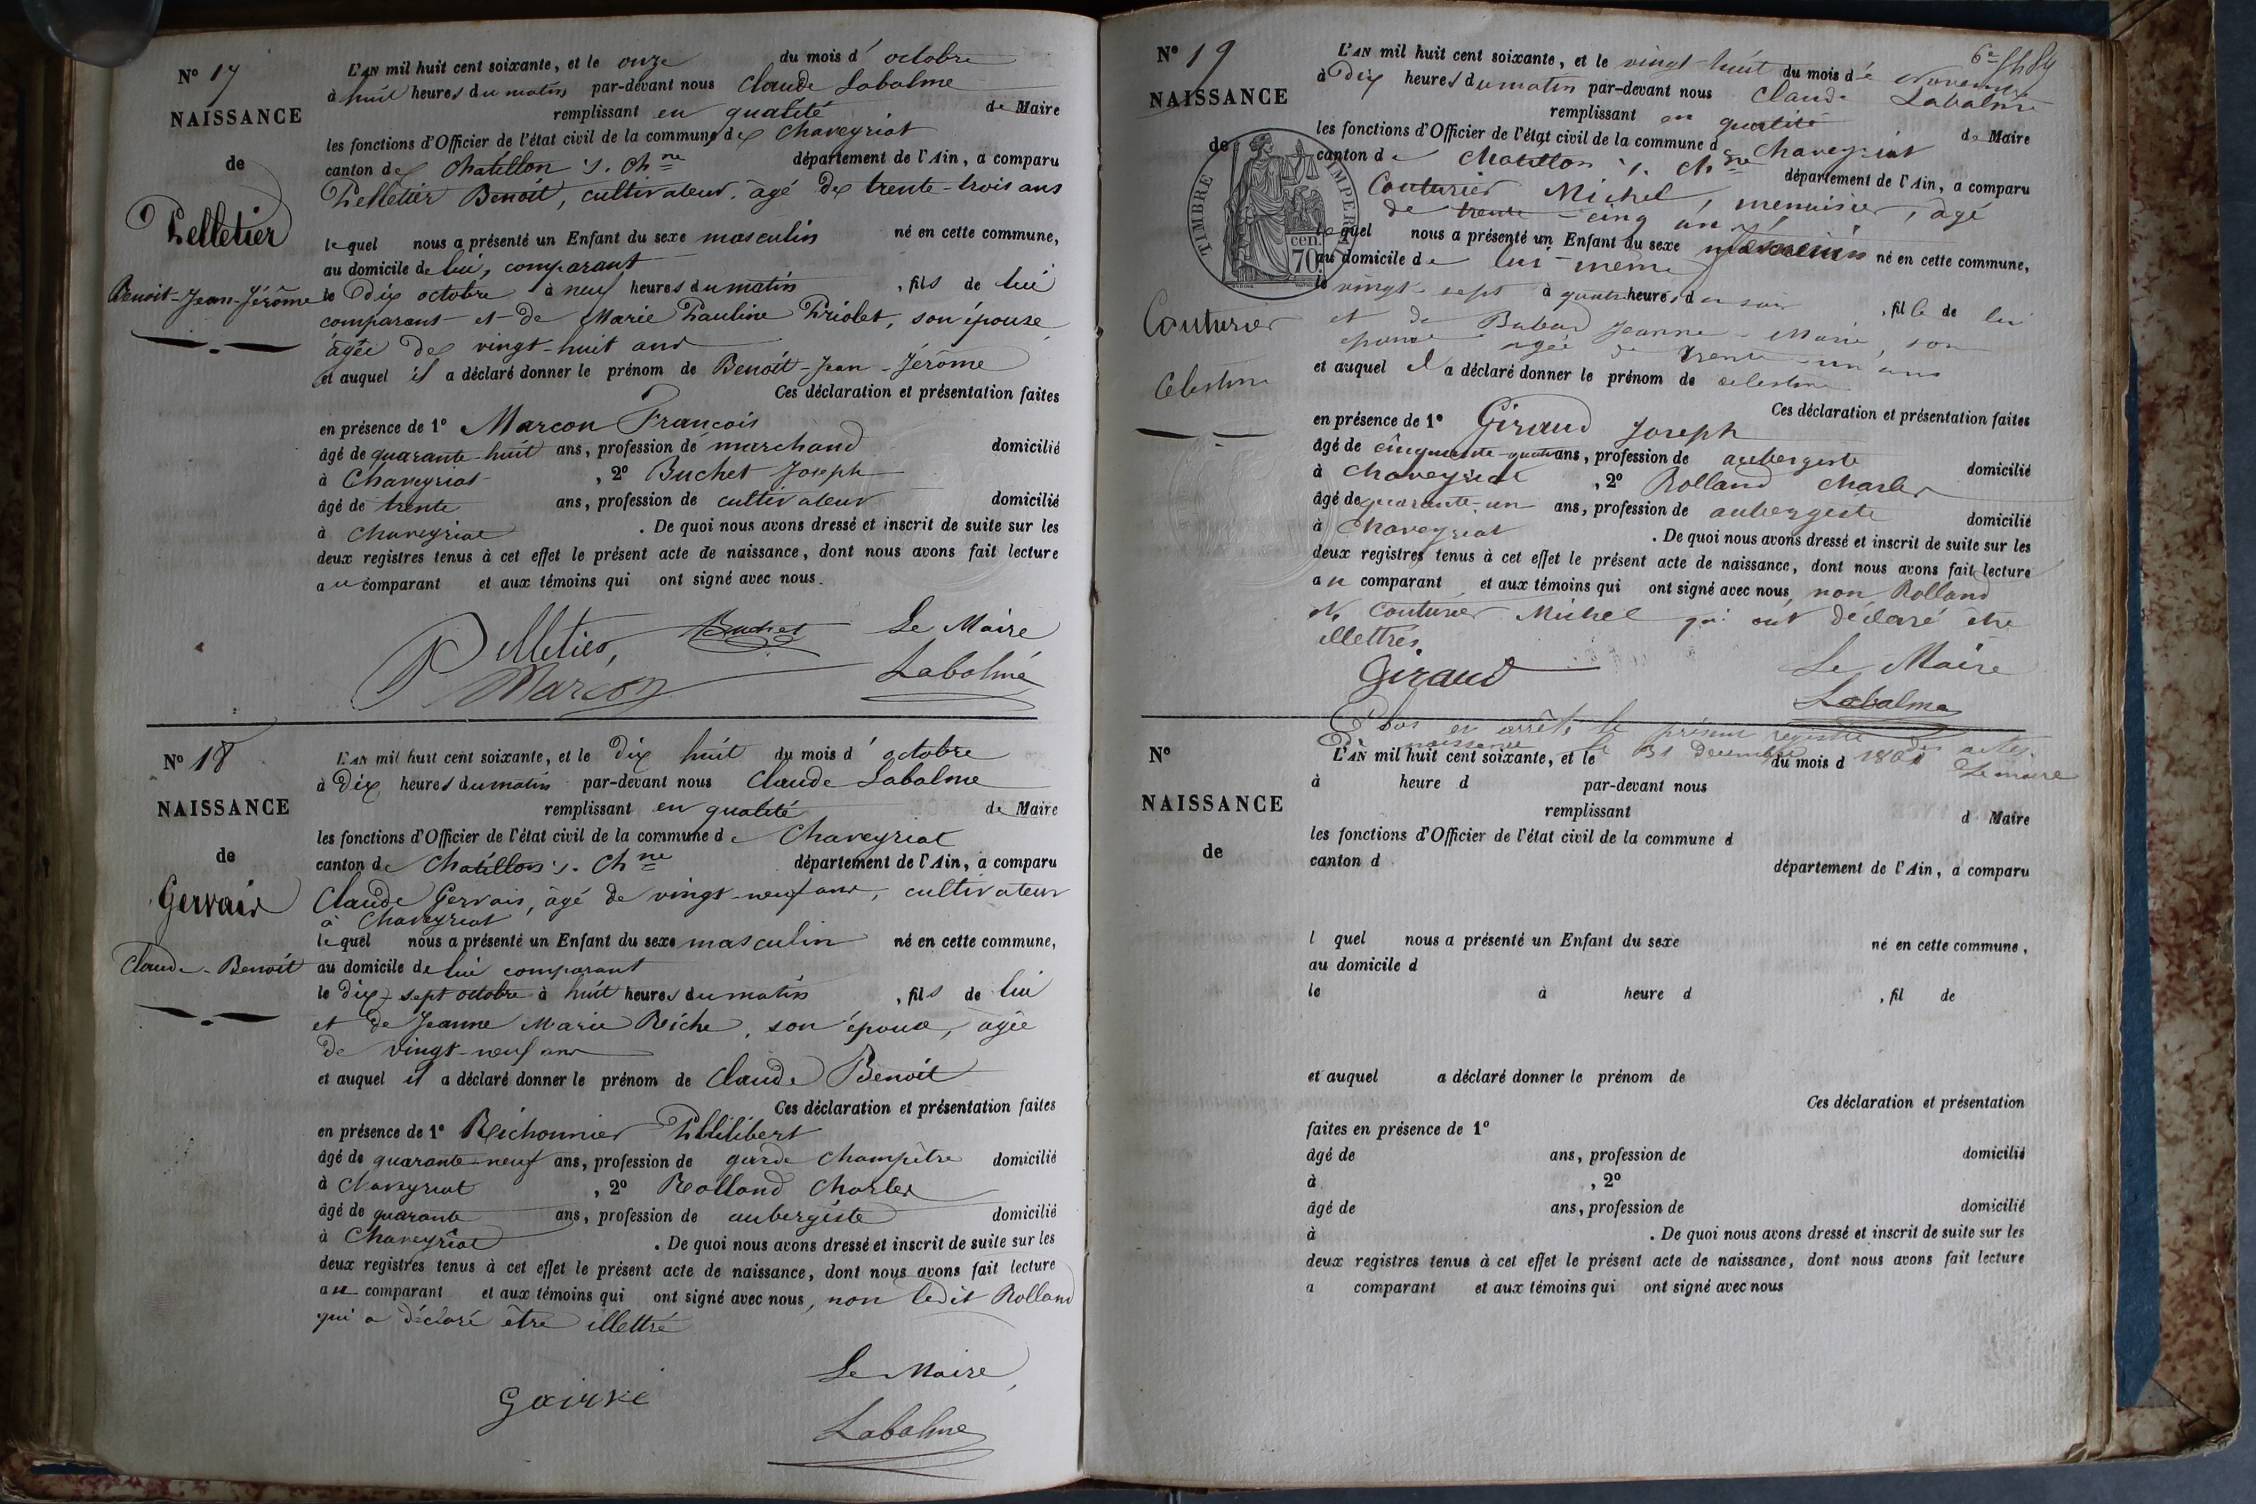 N° 17
NAISSANCE
de
Pelletier
Benoit-Jean-Jérôme
L'AN mil huit cent soixante, et le onze du mois d'octobre
à huit heures du matin par-devant nous Claude Labalme
remplissant en qualité de Maire
les fonctions d'Officier de l'état civil de la commune de Chaveyriat
canton de Chatillon s. Ch^ne département de l'Ain, a comparu
Pelletier Benoit, cultivateur, âgé de trente-trois ans
lequel nous a présenté un Enfant du sexe masculin né en cette commune,
au domicile de lui, comparant
le dix octobre à neuf heures du matin, fils de lui
comparant et de Marie Pauline Priolet, son épouse
âgée de vingt-huit ans
et auquel il a déclaré donner le prénom de Benoît-Jean-Jérôme
Ces déclaration et présentation faites
en présence de 1° Marcon François
âgé de quarante-huit ans, profession de marchand domicilié
à Chaveyriat, 2° Buchet Joseph
âgé de trente ans, profession de cultivateur domicilié
à Chaveyriat. De quoi nous avons dressé et inscrit de suite sur les
deux registres tenus à cet effet le présent acte de naissance, dont nous avons fait lecture
au comparant et aux témoins qui ont signé avec nous.
Pelletier, Buchet Le Maire
Marcon Labalme
N° 18
NAISSANCE
de
Gervais
Claude-Benoît
L'AN mil huit cent soixante, et le dix huit du mois d'octobre
à dix heures du matin par-devant nous Claude Labalme
remplissant en qualité de Maire
les fonctions d'Officier de l'état civil de la commune de Chaveyriat
canton de Chatillon s. Ch^ne département de l'Ain, a comparu
Claude Gervais, âgé de vingt-neuf ans, cultivateur
à Chaveyriat
lequel nous a présenté un Enfant du sexe masculin né en cette commune,
au domicile de lui comparant
le dix-sept octobre à huit heures du matin, fils de lui
et de Jeanne Marie Reiche, son épouse, âgée
de vingt-neuf ans
et auquel il a déclaré donner le prénom de Claude Benoît
Ces déclaration et présentation faites
en présence de 1° Richonnier Philibert
âgé de quarante-neuf ans, profession de garde champêtre domicilié
à Chaveyriat, 2° Rolland Charles
âgé de quarante ans, profession de aubergiste domicilié
à Chaveyriat. De quoi nous avons dressé et inscrit de suite sur les
deux registres tenus à cet effet le présent acte de naissance, dont nous avons fait lecture
au comparant et aux témoins qui ont signé avec nous, non ledit Rolland
qui a déclaré être illettré
Le Maire,
Labalme
N° 19
NAISSANCE
de
TIMBRE IMPERIAL
70 cen.
Couturier
Celestine
L'AN mil huit cent soixante, et le vingt-huit du mois de Novembre
à dix heures du matin par-devant nous Claude Labalme
remplissant en qualité de Maire
les fonctions d'Officier de l'état civil de la commune de Chaveyriat
canton de Chatillon s. Ch^ne département de l'Ain, a comparu
Couturier Michel, menuisier, âgé
de trente-cinq ans
lequel nous a présenté un Enfant du sexe né en cette commune,
au domicile de lui-même
le vingt-sept à quatre heures du soir, fille de lui
et de Jeanne-Marie, son
épouse âgée de trente-un ans
et auquel il a déclaré donner le prénom de celestine
Ces déclaration et présentation faites
en présence de 1° Giraud Joseph
âgé de cinquante-quatre ans, profession de aubergiste
à Chaveyriat, 2° Rolland Charles domicilié
âgé de quarante-un ans, profession de aubergiste
à Chaveyriat. De quoi nous avons dressé et inscrit de suite sur les domicilié
deux registres tenus à cet effet le présent acte de naissance, dont nous avons fait lecture
au comparant et aux témoins qui ont signé avec nous, non Rolland
et Couturier Michel qui ont déclaré être
illettrés.
Giraud Le Maire
Labalme
Clos et arrêté le présent registre des actes
de naissance le 31 Décembre 1860 Le maire
N°
NAISSANCE
de
L'AN mil huit cent soixante, et le du mois d
à heure d par-devant nous
remplissant d Maire
les fonctions d'Officier de l'état civil de la commune d
canton d département de l'Ain, a comparu
l quel nous a présenté un Enfant du sexe né en cette commune,
au domicile d
le à heure d, fil de
et auquel a déclaré donner le prénom de
Ces déclaration et présentation
faites en présence de 1°
âgé de ans, profession de domicilié
à, 2°
âgé de ans, profession de domicilié
à. De quoi nous avons dressé et inscrit de suite sur les
deux registres tenus à cet effet le présent acte de naissance, dont nous avons fait lecture
a comparant et aux témoins qui ont signé avec nous